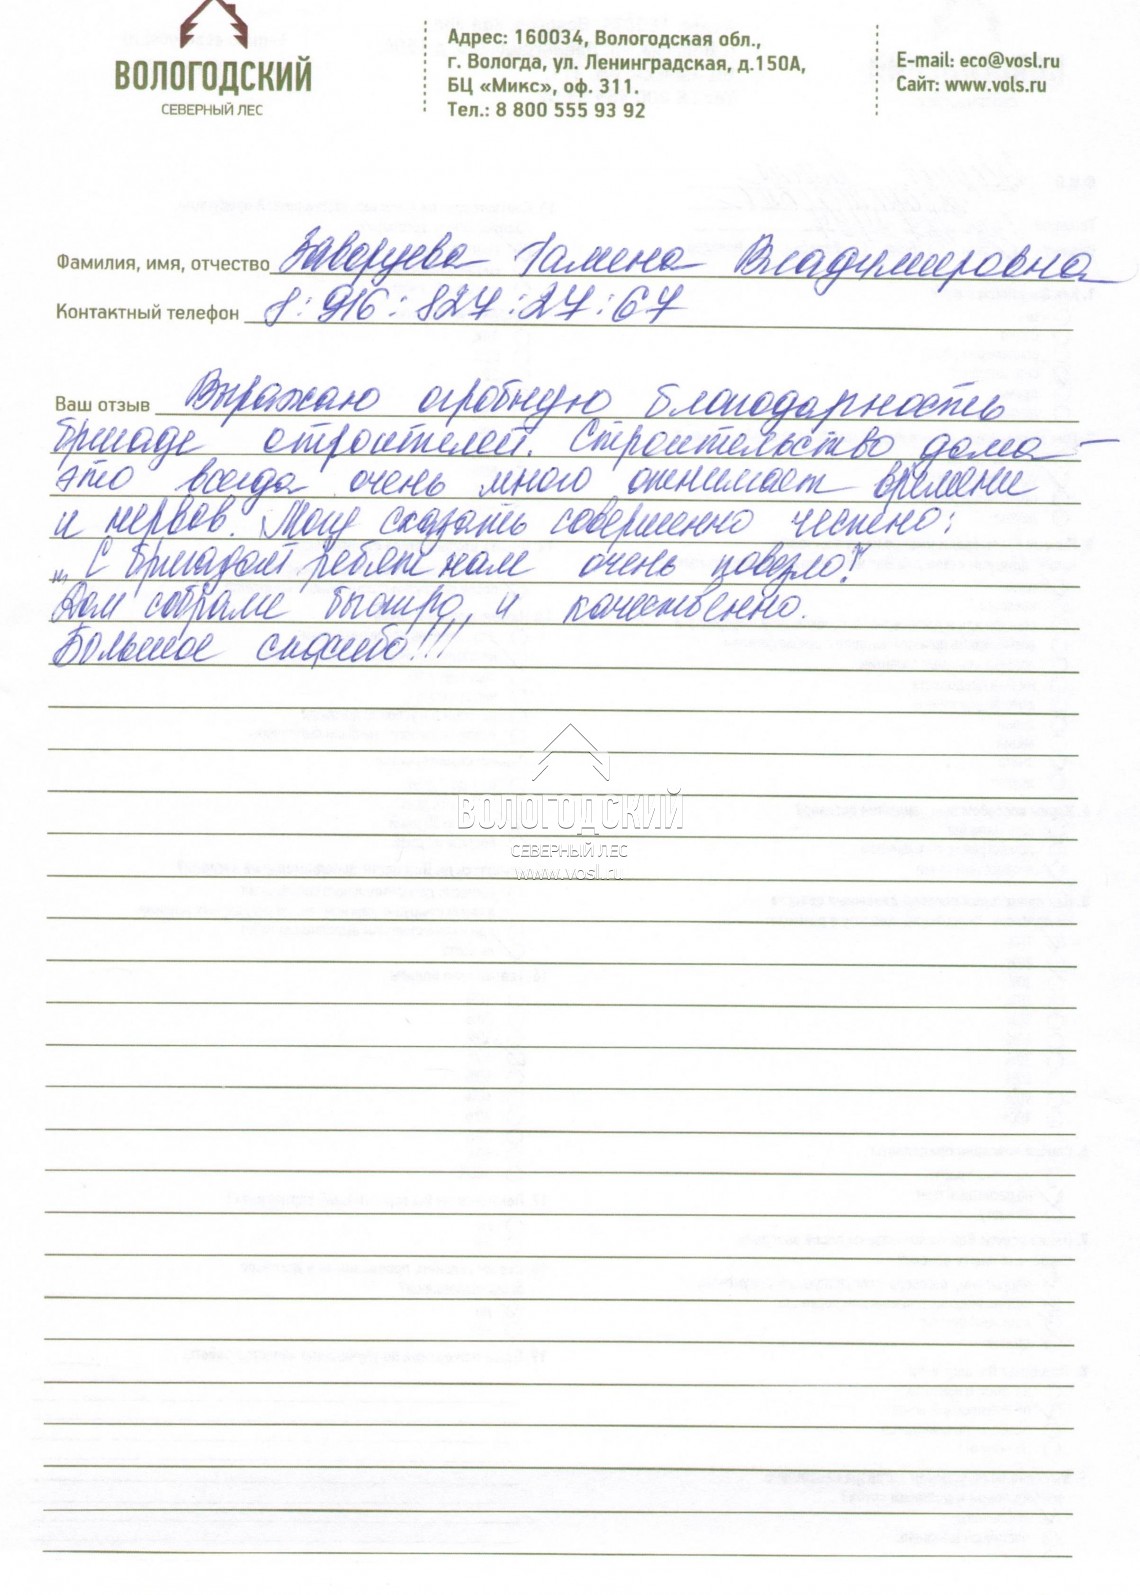 ВОЛОГОДСКИЙ
СЕВЕРНЫЙ ЛЕС
Адрес: 160034, Вологодская обл.,
г. Вологда, ул. Ленинградская, д.150А,
БЦ «Микс», оф. 311.
Тел.: 8 800 555 93 92
E-mail: eco@vosl.ru
Сайт: www.vols.ru
Фамилия, имя, отчество Владимировна
Контактный телефон 8:916:827:27:67
Ваш отзыв Выражаю огромную благодарность
бригаде строителей. Строительство дома –
это всегда очень много отнимает времени
и нервов. Могу сказать совершенно честно:
„С бригадой ребят нам очень повезло!"
Дом собрали быстро и качественно.
Большое спасибо!!!!
ВОЛОГОДСКИЙ
СЕВЕРНЫЙ ЛЕС
www.vosl.ru